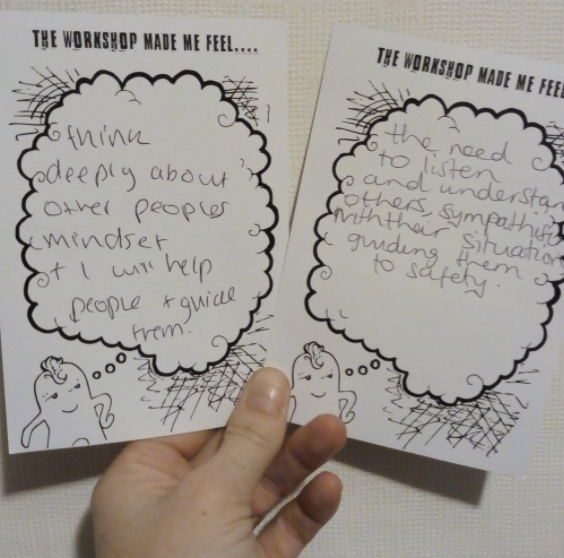 THE WORKSHOP MADE ME FEEL....
think
deeply about
other peoples
mindset
+ I will help
people + guide
them.
THE WORKSHOP MADE ME FEEL
the need
to listen
and understan
others, sympathis
with their situation
guiding them
to safety.